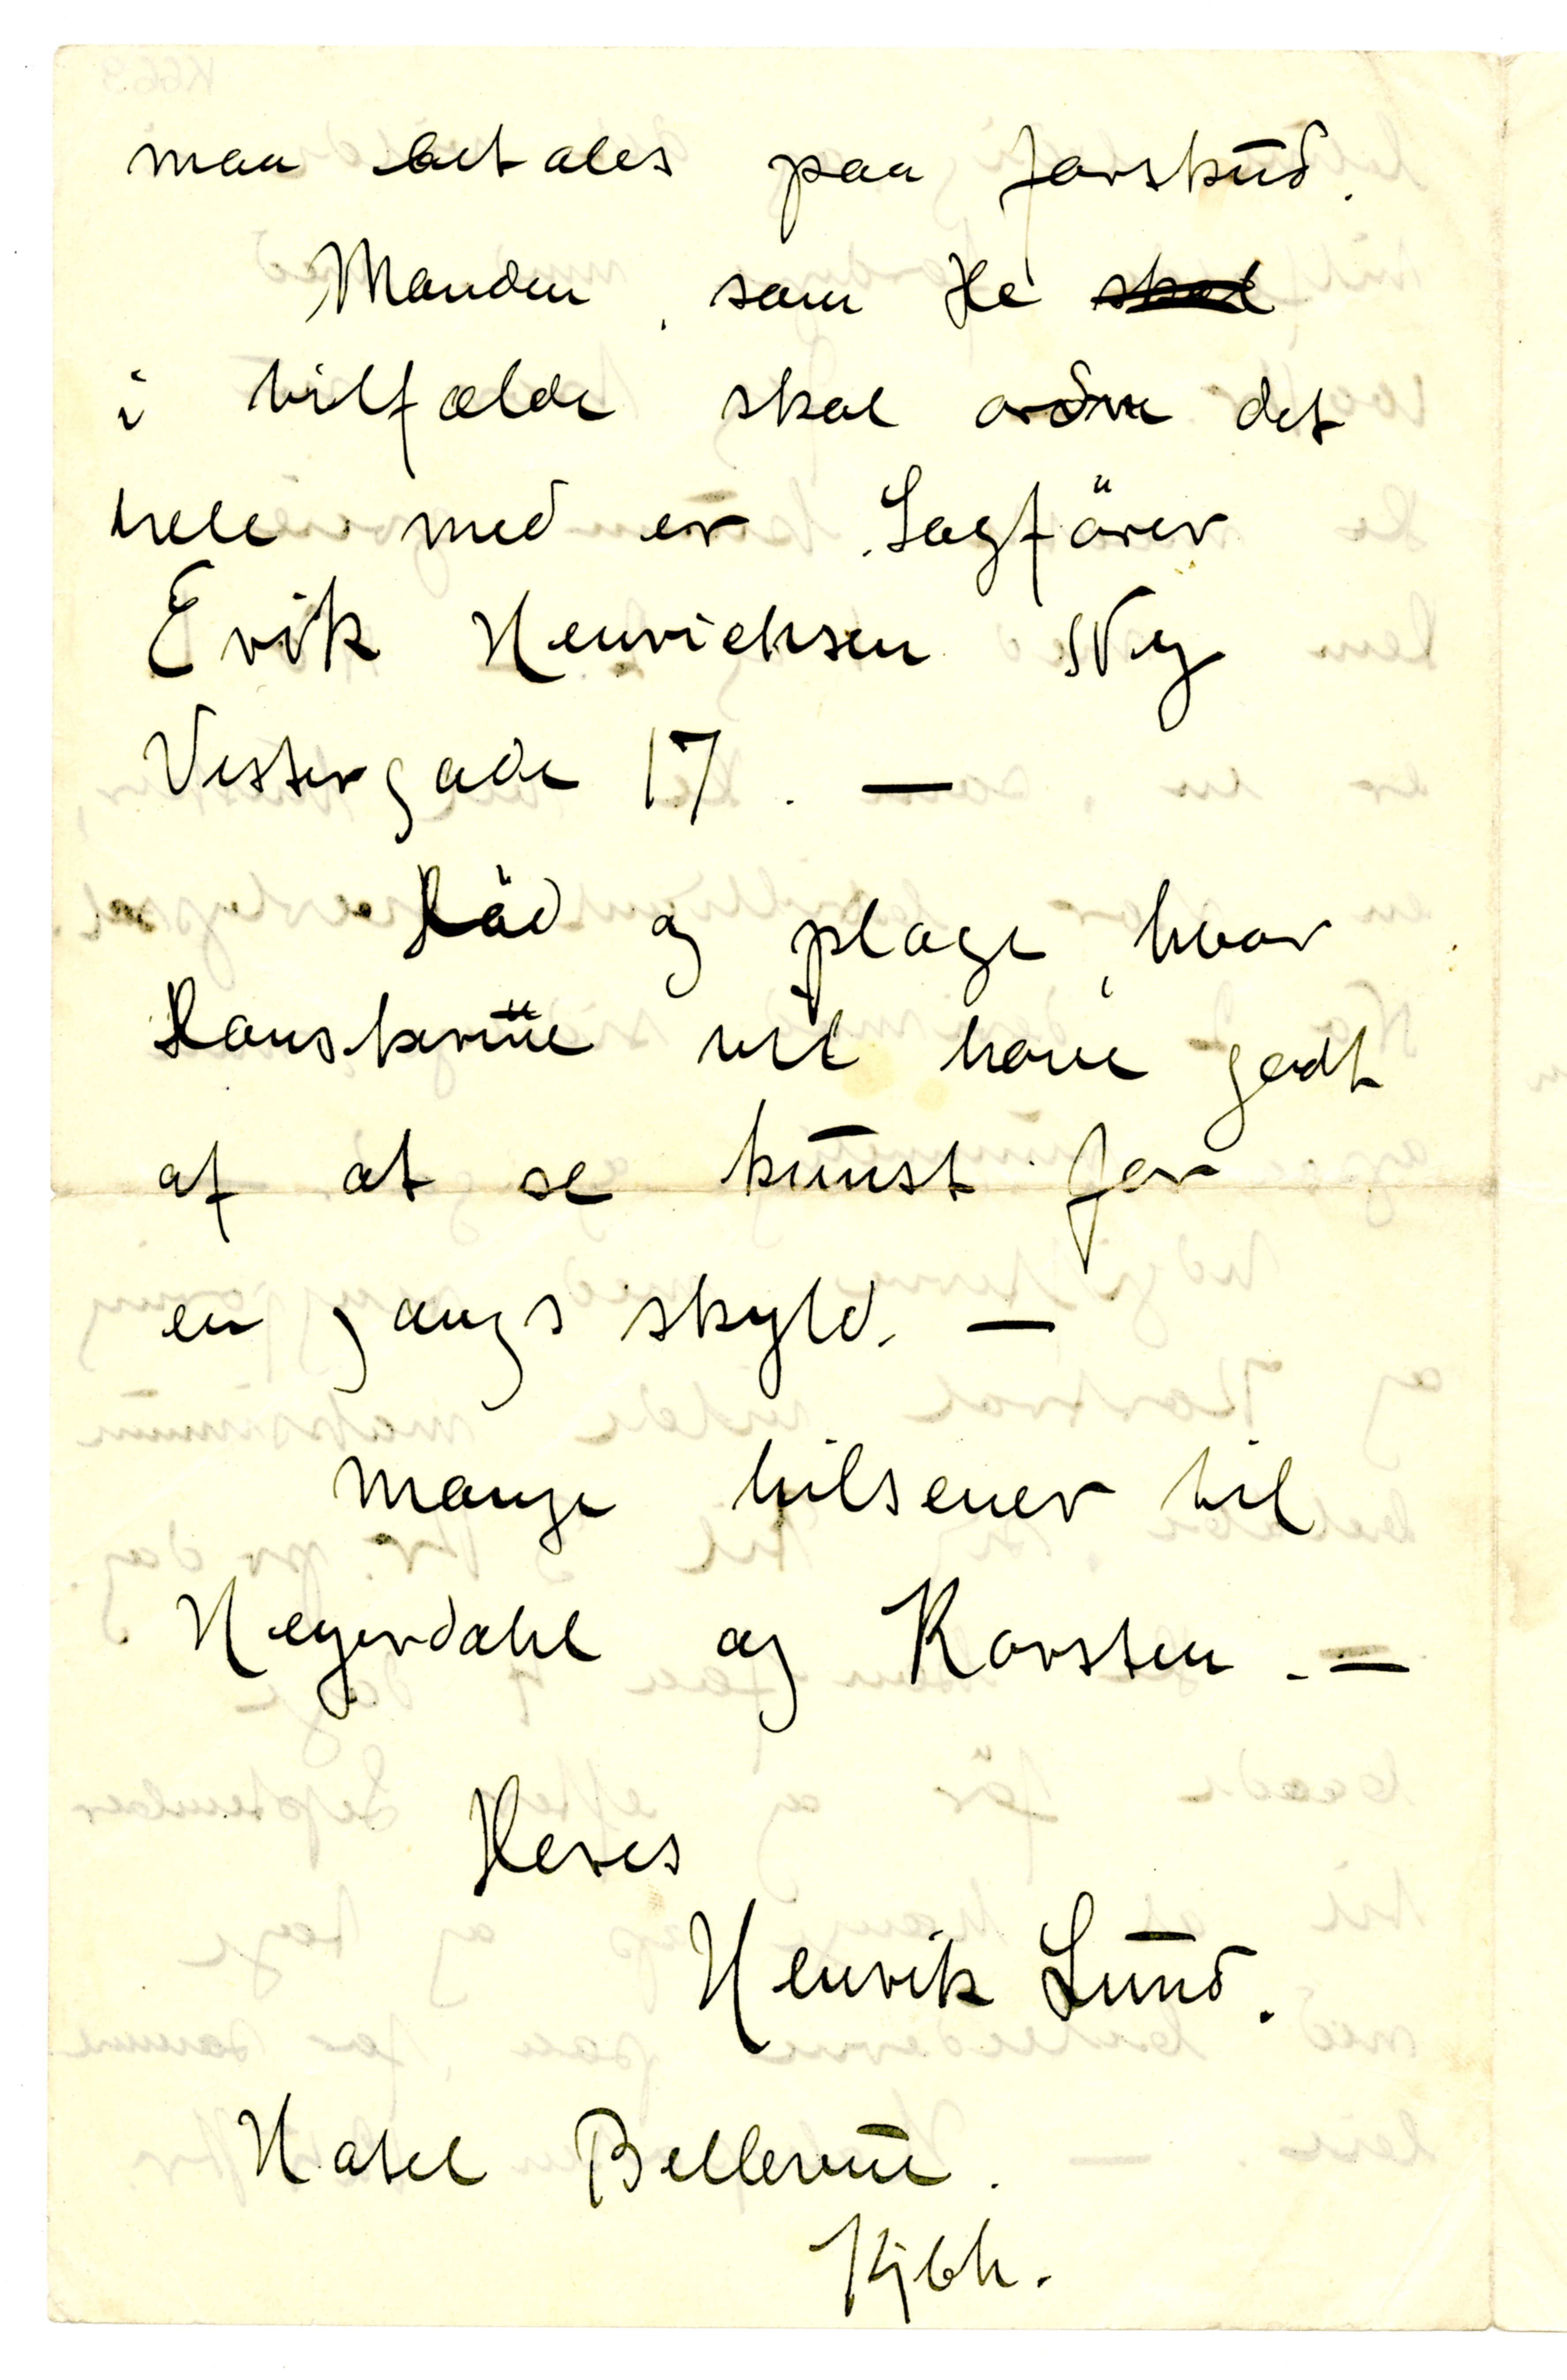 maa betales paa forskud.
Manden, som De skal
i tilfælde skal ordne det
hele med er Sagförer
Erik Henrichsen Ny
Vestergade 17. —
Död og plage, hvor
Danskerne vil have godt
af at se kunst for
en gangs skyld. —
Mange hilsener til
Heyerdahl og Karsten. —
Deres
Henrik Lund.
Hotel Bellevue.
Kjbh.